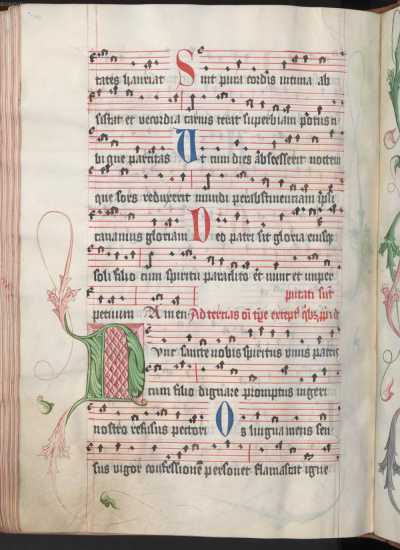 tates hauriat Sint pura cordis intima ab
sistat et vecordia carnis terat superbiam potus ci
bique parcitas Ut cum dies abscesserit noctem
que sors reduxerit mundi per abstinentiam ipsi
canamus gloriam Deo patri sit gloria eiusq
soli filio cum spiritu paraclito et nunc et imper
petuum Amen Ad tercias
Nunc sancte nobis spiritus unus patris
cum filio dignare promptus ingeri
nostro refusus pectori Os lingua mens sen
sus vigor confessionem personet flamascat igne